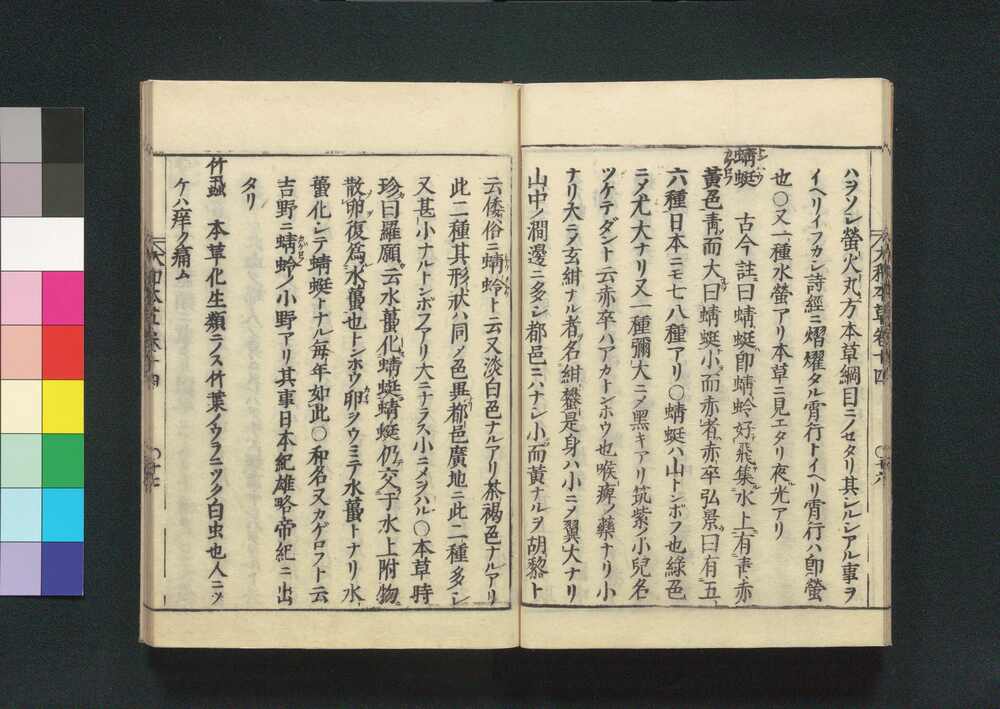 大和本草卷十四
ハヲソン螢火丸方本草綱目ニノセタリ其シルシアル事ヲ
イヘリイフカシ詩經ニ熠燿タル宵行トイヘリ宵行ハ即螢
也〇又一種水螢アリ本草ニ見エタリ夜光アリ
蜻蜓 古今註曰蜻蜓即蜻蛉好飛集水上有青赤
黄色青而大曰蜻蜓小而赤者赤卒弘景曰有五
六種日本ニモ七八種アリ〇蜻蜓ハ山トンボフ也緑色
ニメ尤大ナリ又一種彌大ニメ黒キアリ筑紫ノ小兒名
ツケテダント云赤卒ハアカトンホウ也喉痺ノ藥ナリ小
ナリ大ニノ玄紺ナル者名紺蠜是身ハ小ニメ翼大ナリ
山中ノ澗邊ニ多シ都邑ニハナシ小而黄ナルヲ胡黎ト
云倭俗ニ蜻蛉ト云又淡白色ナルアリ茶褐色ナルアリ
此二種其形状ハ同メ色異都邑廣地ニ此二種多シ
又甚小ナルトンボフアリ大ニナラス小ニメヲハル〇本草時
珍曰羅願云水蠆化蜻蜓蜻蜓仍交于水上附物
散卵復爲水蠆也トンホウ卵ヲウミテ水蠆トナリ水
蠆化シテ蜻蜓トナル毎年如此〇和名又カゲロフト云
吉野ニ蜻蛉ノ小野アリ其事日本紀雄略帝紀ニ出
タリ
竹蝨 本草化生類ニノス竹葉ノウラニツク白虫也人ニツ
ケハ痒ク痛ム
大和本草卷十四